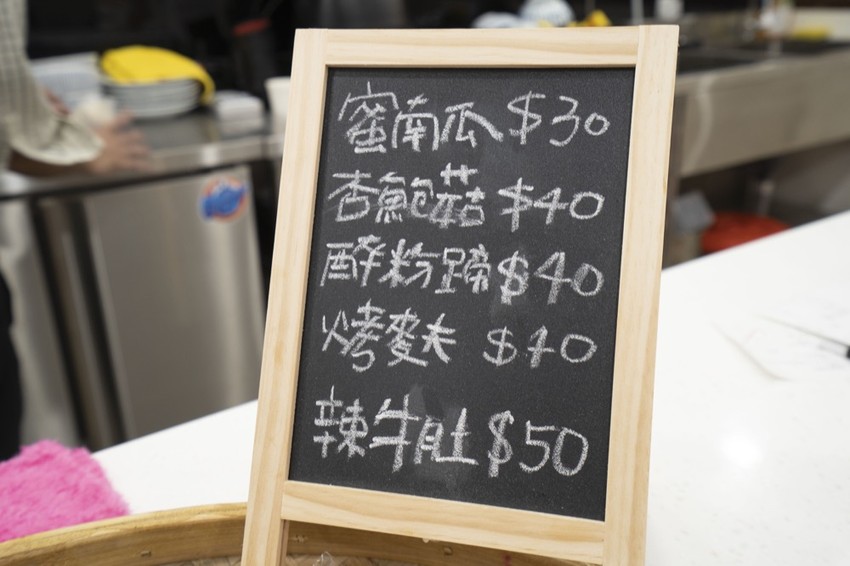 蜜南瓜$30
杏鮑菇$40
醉粉蹄$40
烤麥夫 $40
辣牛肚$50